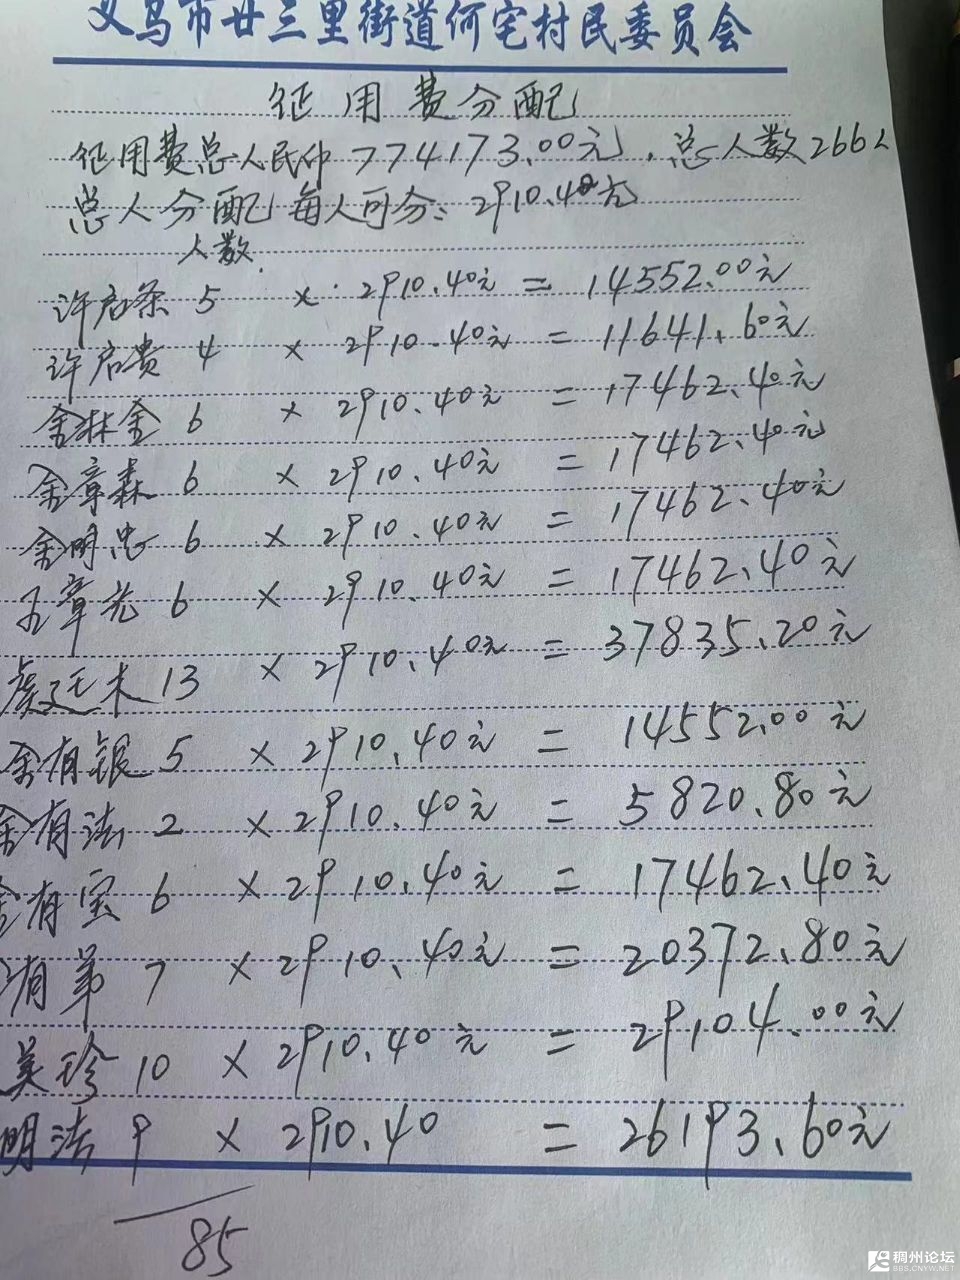 义乌市廿三里街道何宅村民委员会
征用费分配
征用费总人民币774173.00元,总人数266人
总人分配每人可分:2910.40元
人数
许启条 5 × 2910.40元 = 14552.00元
许启贵 4 × 2910.40元 = 11641.60元
金林金 6 × 2910.40元 = 17462.40元
金章森 6 × 2910.40元 = 17462.40元
金明忠 6 × 2910.40元 = 17462.40元
王章光 6 × 2910.40元 = 17462.40元
虞廷木 13 × 2910.40元 = 37835.20元
金有银 5 × 2910.40元 = 14552.00元
金有法 2 × 2910.40元 = 5820.80元
金有宝 6 × 2910.40元 = 17462.40元
有弟 7 × 2910.40元 = 20372.80元
美珍 10 × 2910.40元 = 29104.00元
明法 9 × 2910.40 = 26193.60元
85
稠州论坛
BBS.CNYW.NET